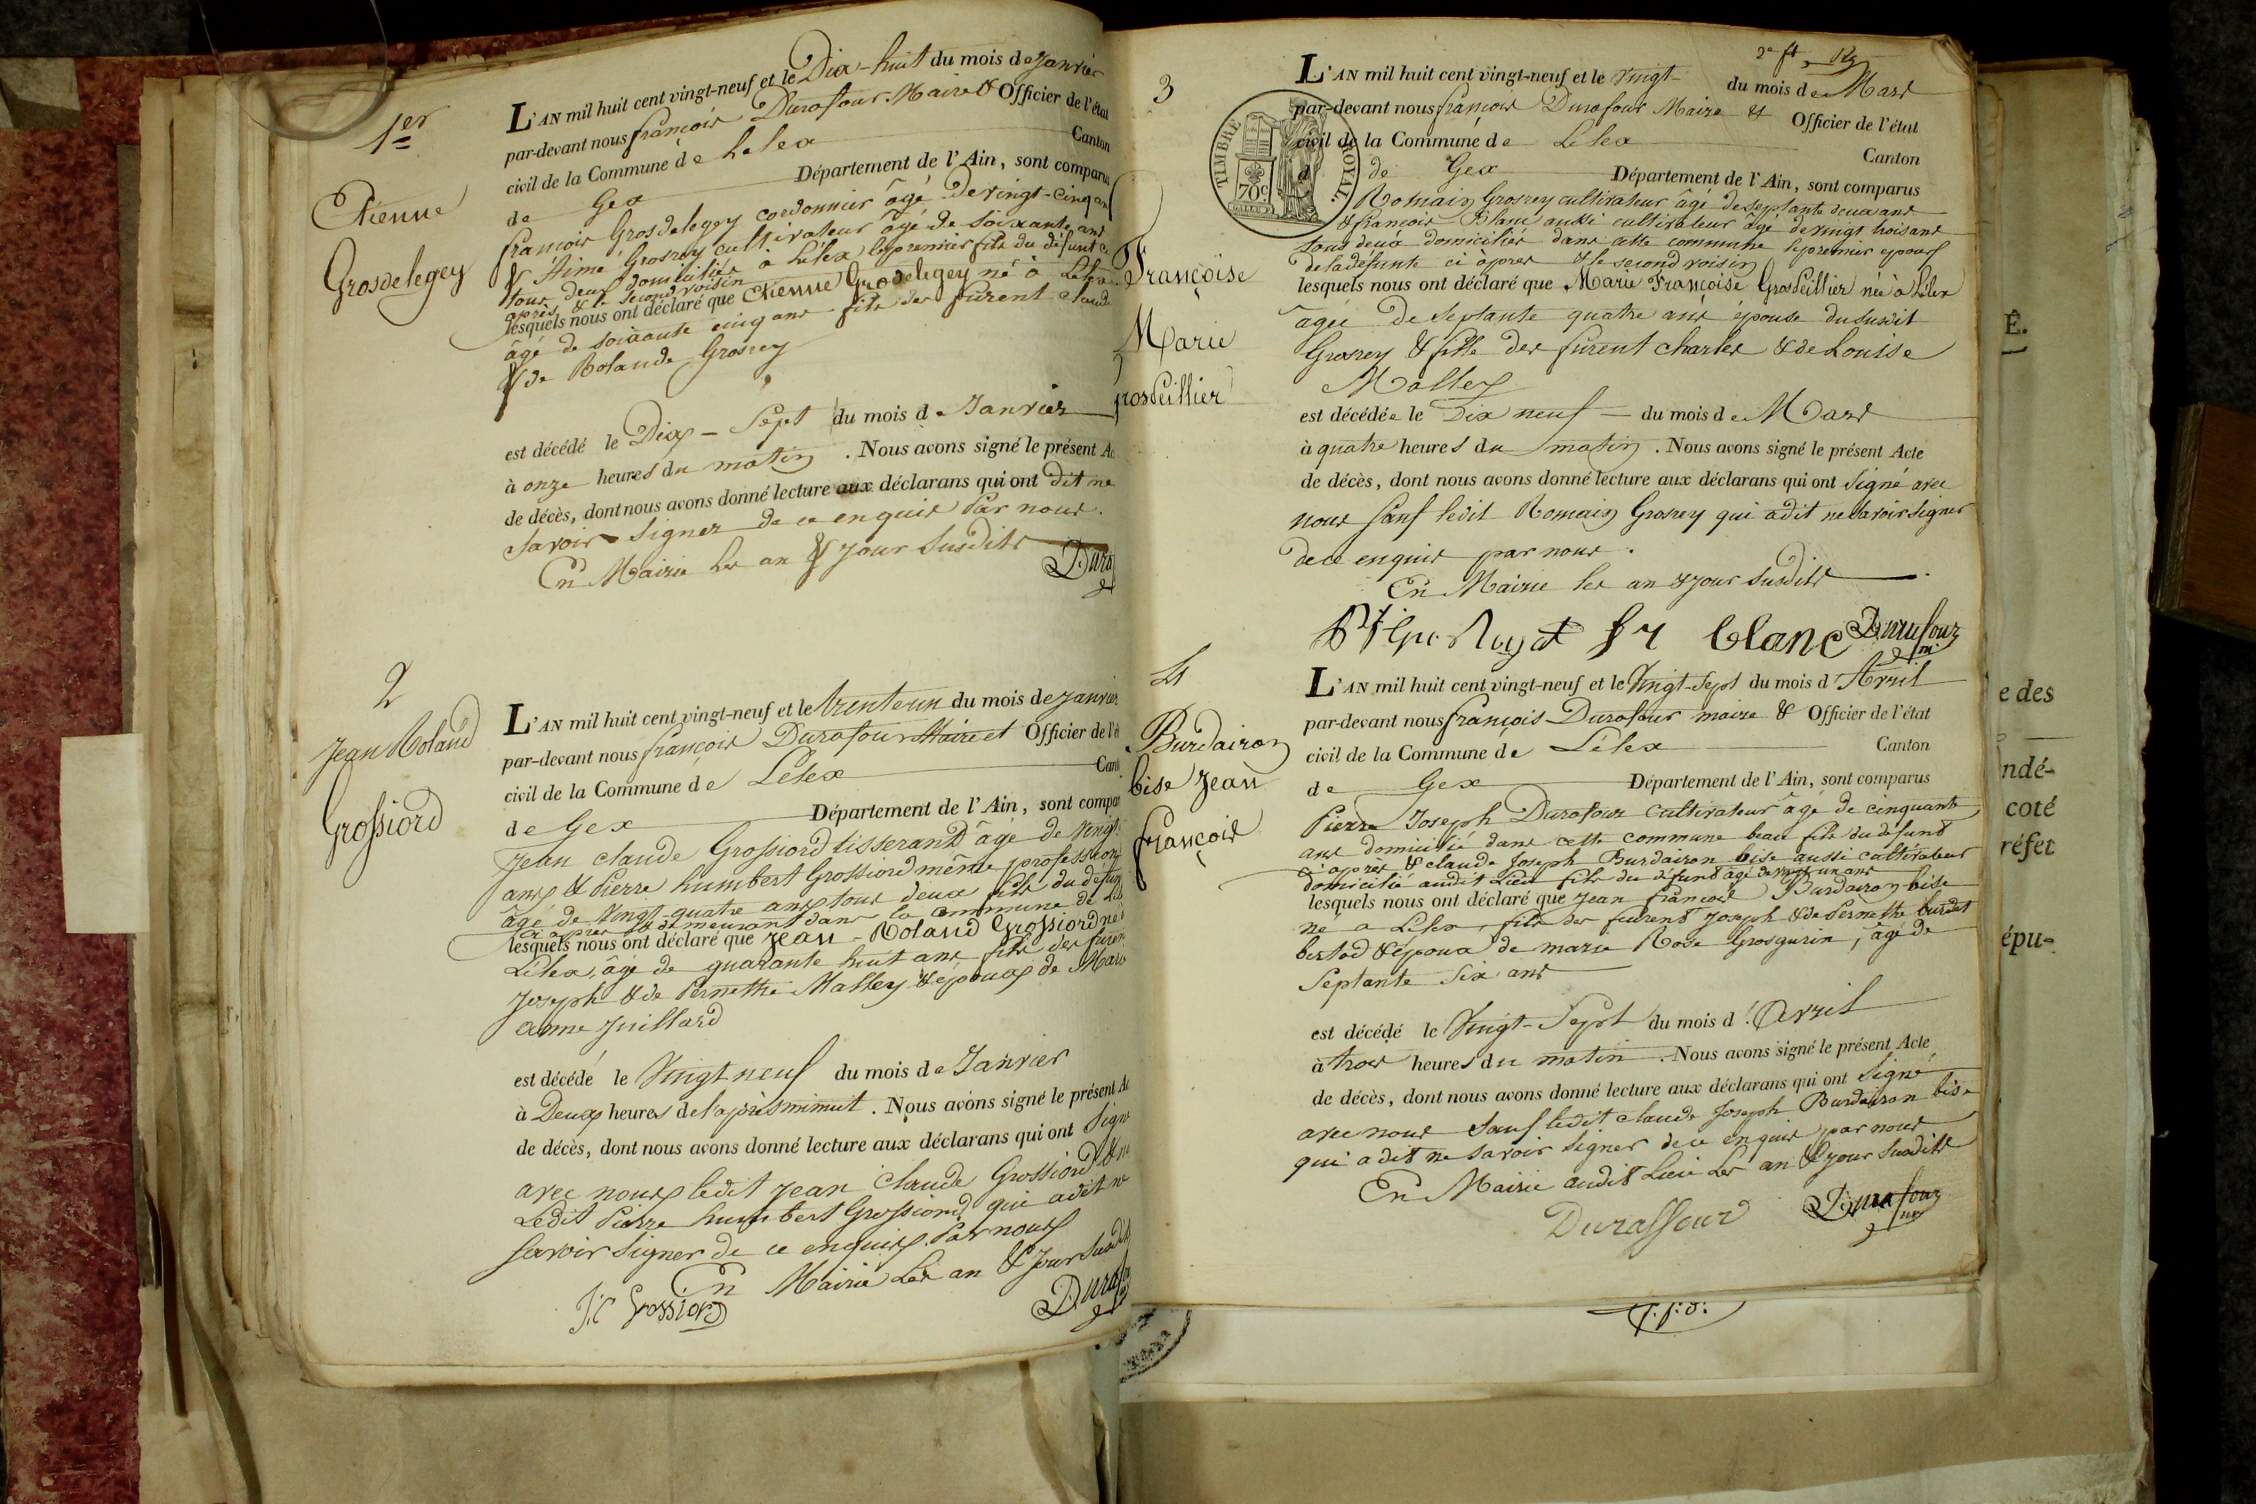 1er
Etienne
Grosdelegey
L'AN mil huit cent vingt-neuf et le Dix-huit du mois de Janvier
par-devant nous françois Durafour Maire & Officier de l'état
civil de la Commune de Lelex Canton
de Gex Département de l'Ain, sont comparus
françois Grosdelegey cordonnier âgé de vingt-cinq ans
& Aimé Grosrey cultivateur âgé de soixante ans
tous deux domiciliés a Lélex le premier fils du défunt ci
après & le second voisin
lesquels nous ont déclaré que Etienne Grosdelegey né à Lelex
âgé de soixante cinq ans fils des furent Claude
& de Rolande Grosrey
est décédé le Dix-Sept du mois de Janvier
à onze heures du matin. Nous avons signé le présent Ac
de décès, dont nous avons donné lecture aux déclarans qui ont dit ne
savoir signer de ce enquis Par nous.
En Mairie Les an & jour Susdits
Dura
2
Jean Roland
Grossiord
L'AN mil huit cent vingt-neuf et le trente un du mois de Janvier
par-devant nous françois Durafour Maire et Officier de l'é
civil de la Commune de Lélex Cant
de Gex Département de l'Ain, sont compar
Jean Claude Grossiord tisserand âgé de Vingt
ans & Pierre humbert Grossiord même profession
âgé de Vingt-quatre ans tous deux fils du défunt
ci après & demeurant dans la commune de Lél
lesquels nous ont déclaré que Jean-Roland Grossiord né
Lélex, âgé de quarante huit ans fils des furen
Joseph & de Pernette Malley & époux de Mari
anne Juillard
est décédé le Vingt neuf du mois de Janvier
à Deux heures de l'après minuit. Nous avons signé le présent Ac
de décès, dont nous avons donné lecture aux déclarans qui ont Signé
avec nous ledit Jean Claude Grossiord & n
Ledit Pierre humbert Grossiord qui a dit ne
savoir signer de ce enquis Par nous
En Mairie Les an & jour susdit
J.C Grossiord
Dura
3
Françoise
Marie
Grospeillier
2e ft
TIMBRE ROYAL.
70c
L'AN mil huit cent vingt-neuf et le vingt du mois de Mars
par-devant nous françois Durafour Maire & Officier de l'état
civil de la Commune de Lélex Canton
d de Gex Département de l'Ain, sont comparus
Romain Grosrey cultivateur âgé de septante deux ans
& françois Blanc aussi cultivateur âgé de vingt trois ans
tous deux domiciliés dans cette commune le premier epoux
de la défunte ci apres & le second voisin
lesquels nous ont déclaré que Marie Françoise Grospeillier née à Lélex
âgée de septante quatre ans épouse du susdit
Grosrey & fille des furent Charles & de Louise
Malley
est décédée le Dix neuf du mois de Mars
à quatre heures du matin. Nous avons signé le présent Acte
de décès, dont nous avons donné lecture aux déclarans qui ont signé avec
nous sauf ledit Romain Grosrey qui a dit ne savoir signer
de ce enquis par nous.
En Mairie les an & jour susdits
blanc Durafour
4
Burdairon
bise Jean
françois
L'AN mil huit cent vingt-neuf et le Vingt-Sept du mois d'Avril
par-devant nous françois Durafour maire & Officier de l'état
civil de la Commune de Lélex Canton
de Gex Département de l'Ain, sont comparus
Pierre Joseph Durafour cultivateur âgé de cinquante
ans domicilié dans cette commune beau fils du defunt
ci après & claude Joseph Burdairon bise aussi cultivateur
domicilié audit Lieu fils du défunt âgé de vingt un ans
lesquels nous ont déclaré que Jean françois Burdairon-bise
né a Lélex, fils des furent Joseph & de Pernette burdet
bertod & époux de marie Rose Grosgurin, âgé de
Septante Six ans
est décédé le Vingt-Sept du mois d'Avril
à trois heures du matin. Nous avons signé le présent Acte
de décès, dont nous avons donné lecture aux déclarans qui ont Signé
avec nous sauf ledit Claude Joseph Burdairon bise
qui a dit ne savoir signer de ce enquis par nous
En Mairie audit Lieu Les an & jour susdits
Duraffour Durafour
É.
e des
ndé-
coté
réfet
épu-